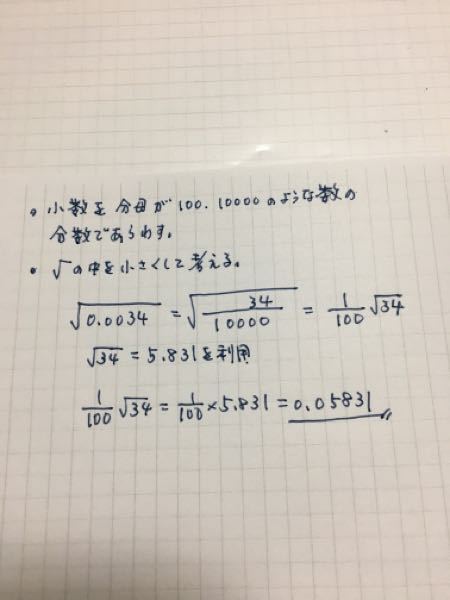 ・小数を分母が100.10000のような数の
分数であらわす。
・√の中を小さくして考える。
√0.0034 = √(34/10000) = 1/100 √34
√34 = 5.831を利用
1/100 √34 = 1/100 × 5.831 = 0.05831